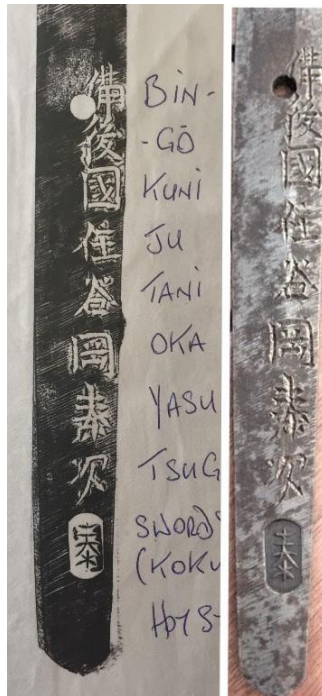 備後國住谷岡泰次
泰
BIN-
-GŌ
KUNI
JU
TANI
OKA
YASU
TSUG
SWORDS
(KOKU
HOYS-
備後國住谷岡泰次
泰